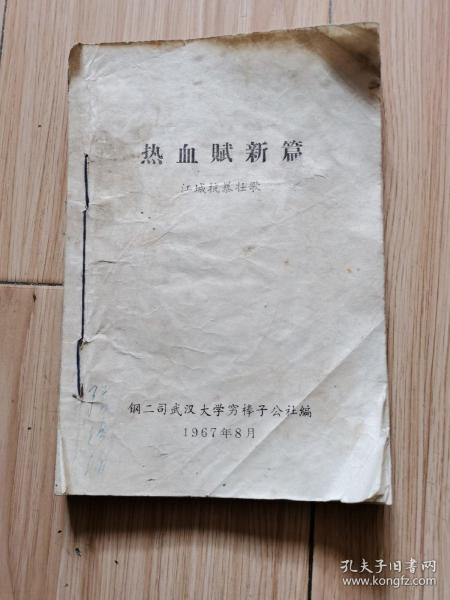 热血赋新篇
江城抗暴壮歌
钢二司武汉大学穷棒子公社编
1967年8月
孔夫子旧书网
www.kongfz.com